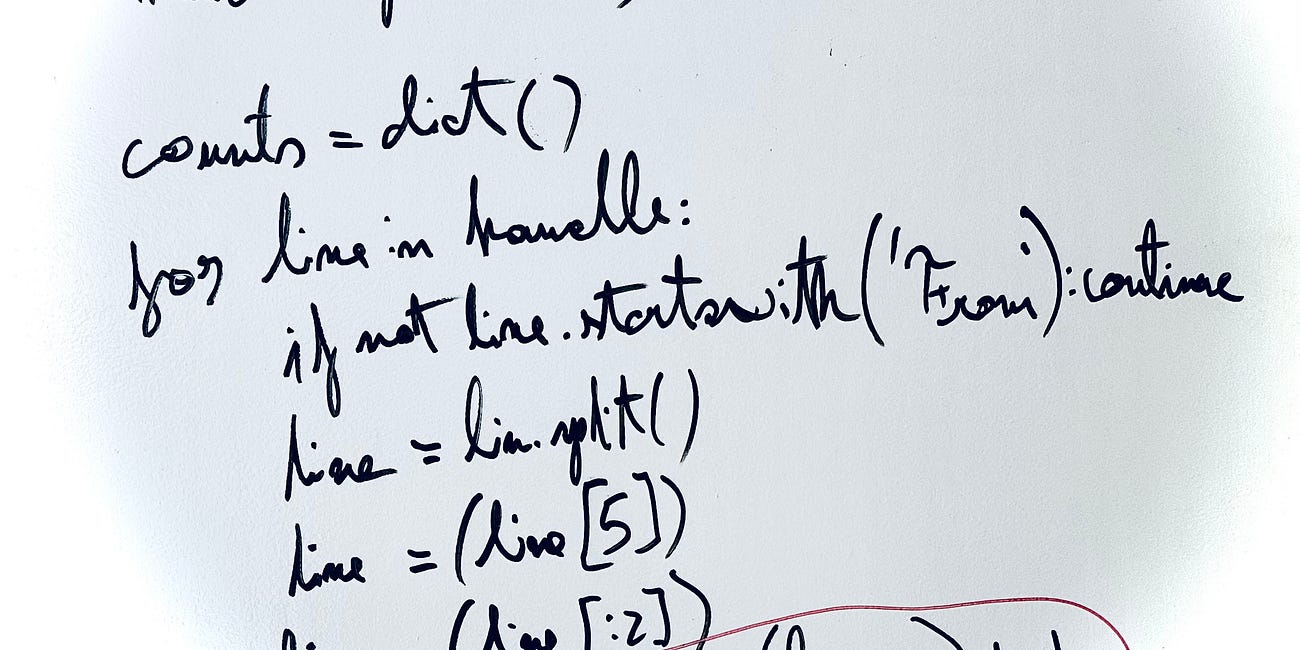 counts = dict()
for line in handle:
if not line.startswith('From'):continue
line = lin.split()
line = (line[5])
(line[:2])